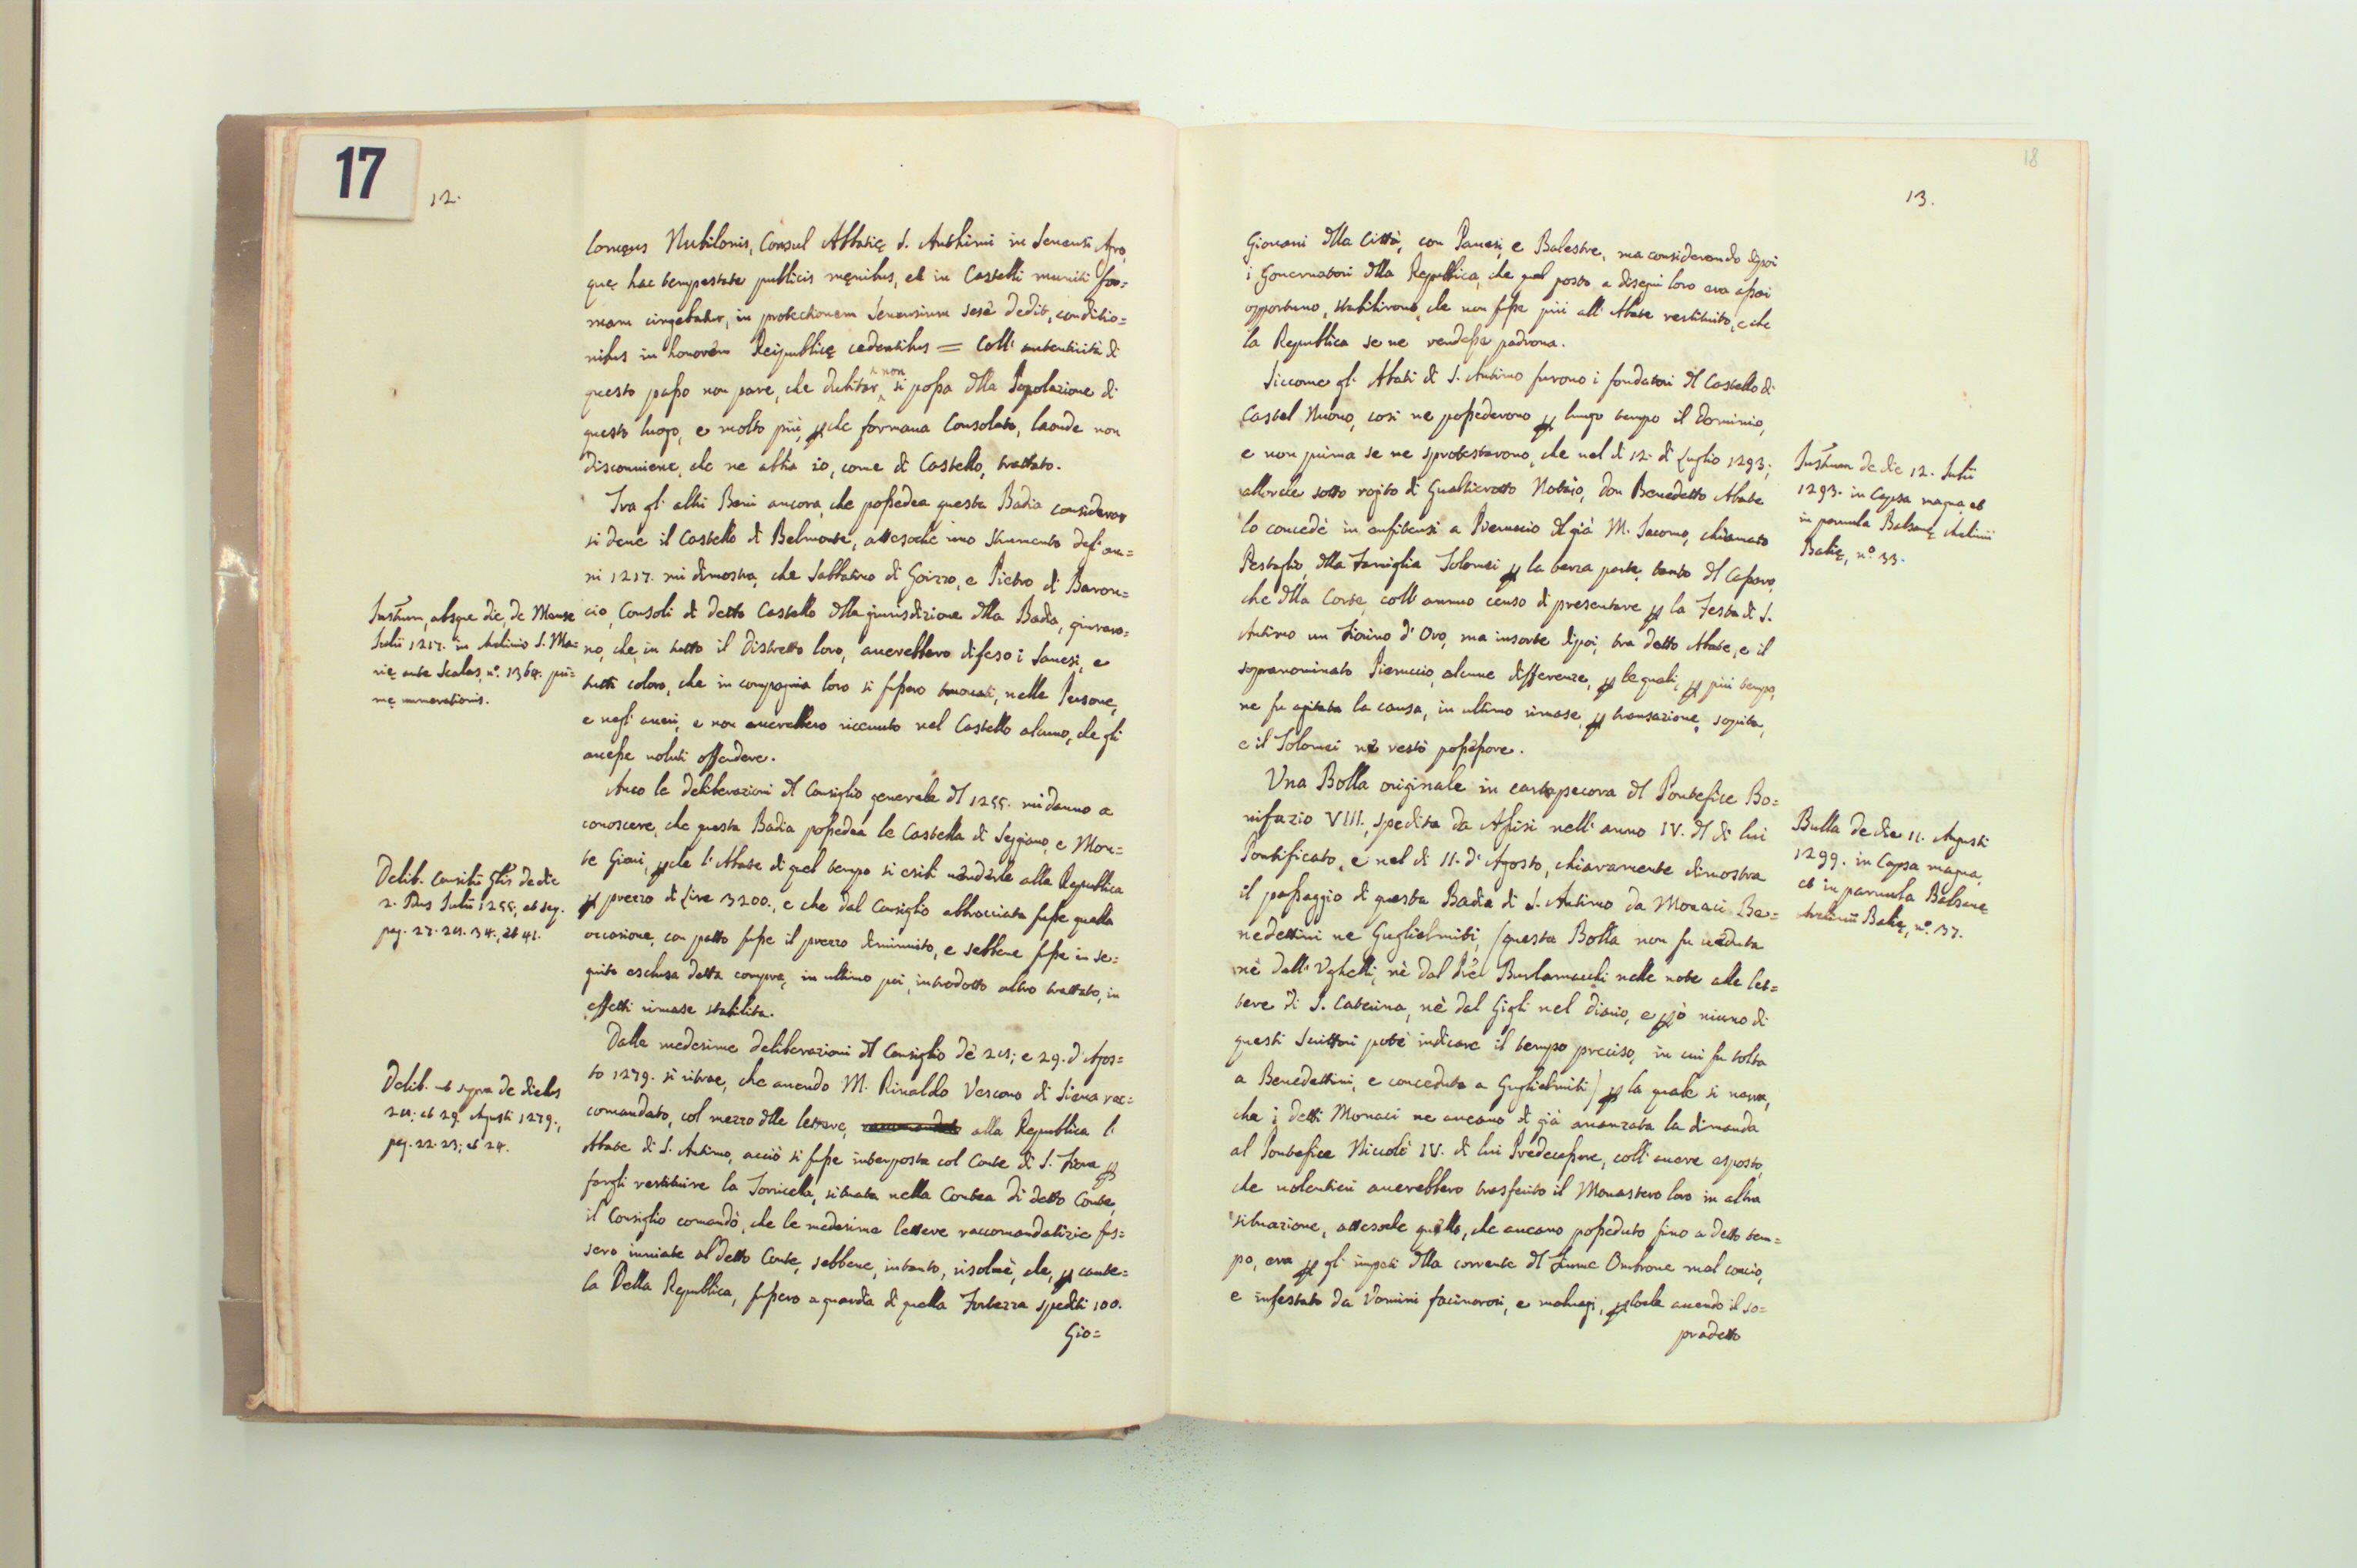 17
12.
Comes Nubilonis, Consul Abbatię S. Anthimi in Senensi Agro,
quę hac tempestate publicis męnibus, et in Castelli muniti for=
mam cingebatur, in protectionem Senensium sesè dedit, conditio=
nibus in honorem Reipublicę cedentibus = Coll' autenticità di
questo passo non pare, che dubitar non si possa dlla Popolazione di
questo luogo, e molto più, pche formaua Consolato, laonde non
disconuiene, che ne abbia io, come di Castello, trattato.
Tra gl' altri Beni ancora, che possedea questa Badia considerar
si deue il Castello di Belmonte, attesochè uno Strumento dell' an=
ni 1217. mi dimostra, che Sabbatino di Goizzo, e Pietro di Baron=
cio, Consoli di detto Castello dlla giurisdizione dlla Badia, giuraro=
no, che in tutto il distretto loro, auerebbero difeso i Sanesi, e
tutti coloro, che in compagnia loro si fussero trouati, nelle Persone,
e negl' aueri, e non auerebbero riceuuto nel Castello alcuno, che gli
auesse uoluti offendere.
Instrum, absque die, de Mense
Julii 1217. in Archiuio S. Ma=
rię ante Scalas, n.º 1364. pri=
mę numerationis.
Anco le deliberazioni dl Consiglio generale dl 1255. mi danno a
conoscere, che questa Badia possedea le Castella di Seggiano, e Mon=
te Gioui, pche l' Abate di quel tempo si esibì uenderle alla Republica
p prezzo di Lire 3200., e che dal Consiglio abbracciata fusse quella
occasione, con patto fusse il prezzo diminuito, e sebbene fusse in se=
guito esclusa detta compra, in ultimo poi, introdotto altro trattato, in
effetti rimase stabilita.
Delib. Consilii Gtis de die
2. Idus Julii 1255, et seq.
pag. 27. 28. 34., et 41.
Dalle medesime deliberazioni dl Consiglio dè 28; e 29. d' Agos=
to 1279. si ritrae, che auendo M. Rinaldo Vescouo di Siena rac=
comandato, col mezzo dlle lettere, alla Republica l'
Abate di S. Antimo, acciò si fusse interposta col Conte di S. Fiora p
fargli restituire la Torricella, situata nella Contea di detto Conte,
il Consiglio comandò, che le medesime lettere raccomandatizie fus=
sero inuiate al detto Conte, sebbene, intanto, risoluè, che, p caute=
la Della Republica, fussero a guardia di quella Fortezza spediti 100.
Gio=
Delib. ut supra de diebus
28; et 29. Agusti 1279.,
pag. 22. 23; et 24.
18
13.
Giouani dlla Città, con Pauesi, e Balestre, ma considerando dipoi
i Gouernatori dlla Republica, che quel posto a disegni loro era assai
opportuno, stabilirono, che non fusse più all' Abate restituito, e che
la Republica se ne rendesse padrona.
Siccome gl' Abati di S. Antimo furono i fondatori dl Castello di
Castel Nuouo, così ne possederono p lungo tempo il dominio,
e non prima se ne sprotestarono, che nel dì 12. di Luglio 1293;
allorche sotto rogito di Gualtierotto Notaio, don Benedetto Abate
lo concedè in enfiteusi a Pieruccio dl già M. Iacomo, chiamato
Pestaglio, dlla Famiglia Tolomei p la terza parte, tanto dl Cassaro,
che dlla Corte, coll' annuo censo di presentare p la Festa di S.
Antimo un Fiorino d' Oro, ma insorte dipoi, tra detto Abate, e il
sopranominato Pieruccio, alcune differenze, p le quali, p più tempo,
ne fu agitata la causa, in ultimo rimase, p transazione, sopita,
e il Tolomei nè restò possessore.
Instrum de die 12. Julii
1293. in Capsa magna, et
in paruula Balzanę Archiuii
Balię, n.º 33.
Vna Bolla originale in cartapecora dl Pontefice Bo=
nifazio VIII., spedita da Assisi nell' anno IV. dl di lui
Pontificato, e nel dì 11. d' Agosto, chiaramente dimostra
il passaggio di questa Badia di S. Antimo da Monaci Be=
nedettini ne Guglielmiti, (questa Bolla non fu ueduta
nè dall' Vghelli, nè dal Pre Burlamacchi nelle note alle let=
tere di S. Caterina, nè dal Gigli nel diario, e pò niuno di
questi Scrittori potè indicare il tempo preciso, in cui fu tolta
a Benedettini, e conceduta a Guglielmiti) p la quale si narra,
che i detti Monaci ne aueano di già auanzata la dimanda
al Pontefice Niccolò IV. di lui Predecessore, coll' auere esposto,
che uolentieri auerebbero trasferito il Monastero loro in altra
situazione, attesoche quello, che aueano posseduto fino a detto tem=
po, era p gl' impeti dlla corrente dl Fiume Ombrone mal concio,
e infestato da Vomini facinorosi, e maluagi, ploche auendo il so=
pradetto
Bulla de die 11. Agusti
1299. in Capsa magna,
et in paruula Balzanę
Archiuii Balię, n.º 37.